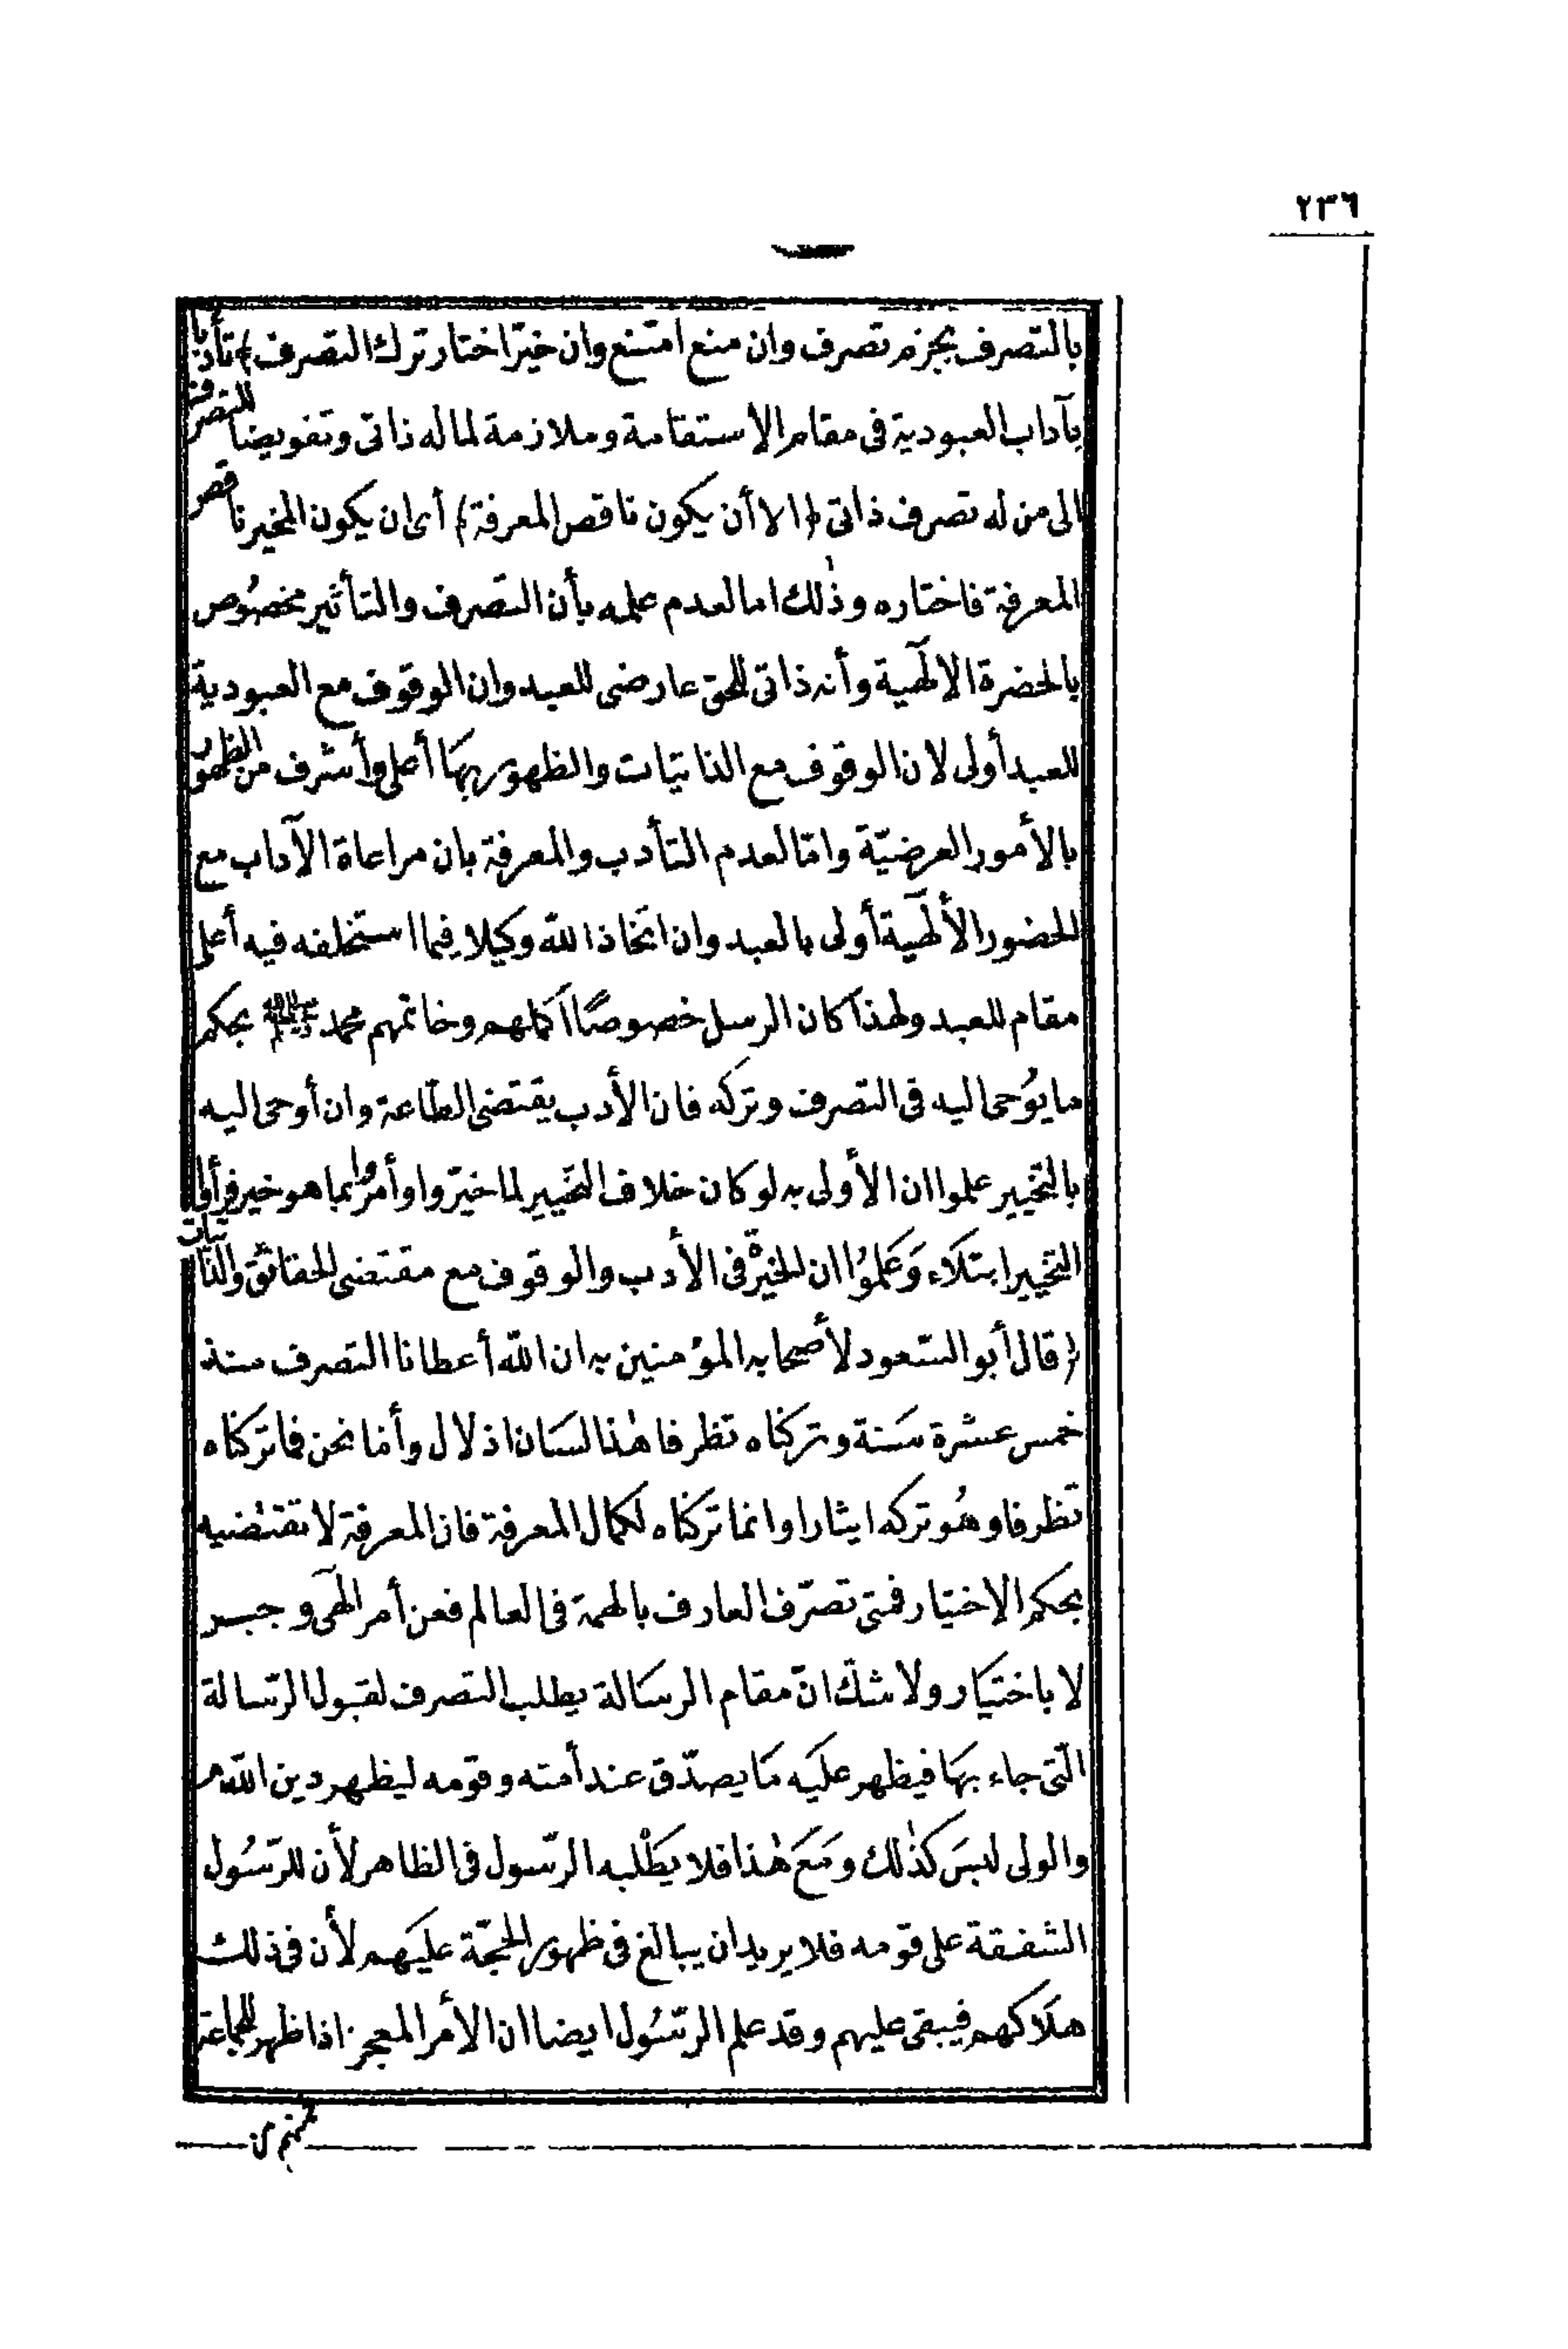 ٢٣٦
بالتصرف بجزم تصرف وان منع امتنع وان خيّر اختار ترك التصرف) تأدبا
بآداب العبودية فى مقام الاستقامة وملازمة لما له ذاتى وتفويضا للتصرف
الى من له تصرف ذاتى (الا أن يكون ناقص المعرفة) أى ان يكون المخير ناقص
المعرفة فاختاره وذٰلك اما لعدم علمه بأن التصرف والتأثير مخصُوص
بالحضرة الالٓهية وأنه ذاتى للحق عارضى للعبد وان الوقوف مع العبودية
للعبد أولى لان الوقوف مع الذاتيات والظهور بهَا أعلى وأشرف من الظهور
بالأمور العرضيّة وامّا لعدم التأدب والمعرفة بان مراعاة الآداب مع
الحضور الألٓهية أولى بالعبد وان اتخاذ اللّه وكيلا فيما استخلفه فيه أعلى
مقام للعبد ولهذا كان الرسل خصوصًا أكملهم وخاتمهم محمد ﷺ بحكم
ما يُوحى اليه فى التصرف وتركه فان الأدب يقتضى الطّاعة وان أوحى اليه
بالتخيير علموا ان الأولى به لو كان خلاف التخيير لما خيّروا وأمروا بما هو خير فرأوا
التخيير ابتلَاء وَعَلموُا ان الخيرْة فى الأدب والوقوف مع مقتضى الحقائق والذاتيات
(قال أبو السّعود لأصحابه المؤمنين به ان اللّه أعطانا التصرف منذ
خمس عشرة سَنة وتركناه تظرفا هٰذا لسَان اذلال وأما نحن فما تركناه
تظرفا وهُو تركه ايثارا وانما تركناه لكمال المعرفة فان المعرفة لا تقتضيه
بحكم الاختيار فمتى تصرّف العارف بالهمة فى العالم فعن أمر الهٓى وجبر
لا باختيَار ولا شكّ انّ مقام الرسَالة يطلب التصرف لقبول الرّسالة
الّتى جاء بهَا فيظهر علَيه مَا يصدّق عند أمته وقومه ليظهر دين اللّه
والولى ليسَ كذٰلك ومَعَ هٰذا فلا يَطْلبه الرّسول فى الظاهر لأن للرّسُول
الشفقة على قومه فلا يريد ان يبالغ فى ظهور الحجّة عليَهم لأن فى ذلك
هلَاكهم فيبقى عليهم وقد علم الرّسُول ايضا ان الأمر المعجز اذا ظهر للجماعة